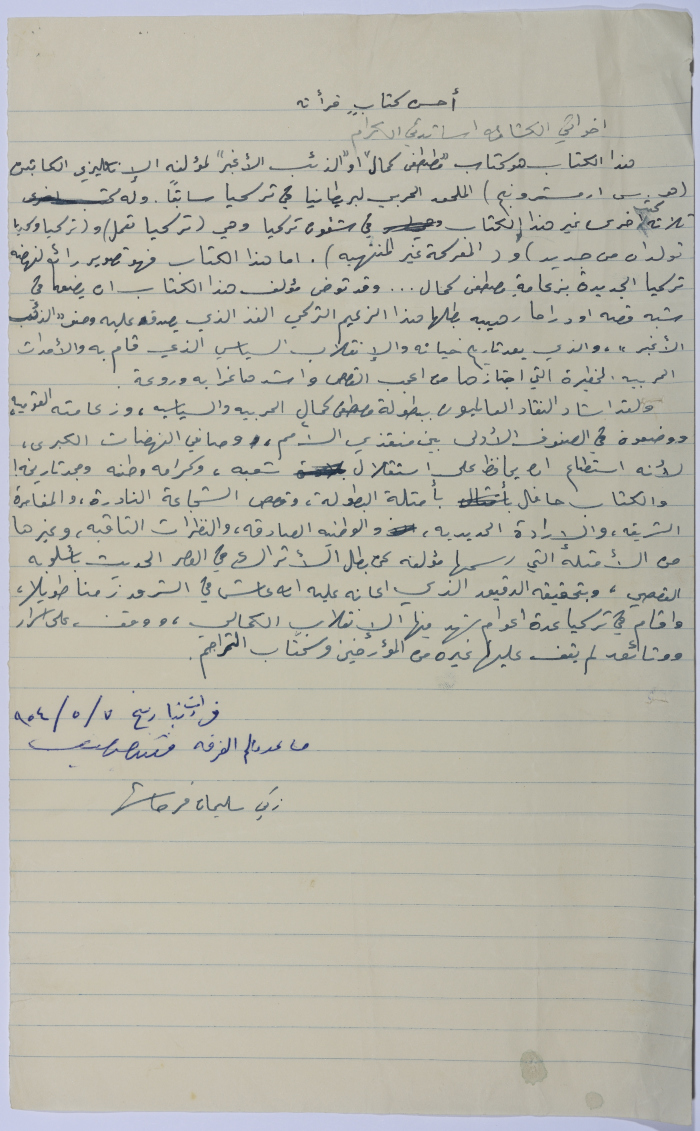 أحسن كتابٍ قرأته
اخواني الكشافه اساتذتي الكرام
هذا الكتاب هو كتاب "مصطفى كمال" او "الذئب الأغبر" لمؤلفه الإنكليزي الكابتن
(هـ. س ارمسترونج) الملحق الحربي لبريطانيا في تركيا سابقاً. وله كتب اخرى
ثلاثة كتب اخرى غير هذا الكتاب وهي في شئون تركيا وهي (تركيا تعمل) و (تركيا وسوريا
تولدان من جديد) و (المعركة غير المنتهيه). اما هذا الكتاب فهو تصوير رائع لنهضة
تركيا الحديدة بزعامة مصطفى كمال ... وقد توخى مؤلف هذا الكتاب ان يضعه في
شبه قصه او دراما رهيبه بطلها هذا الزعيم التركي الفذ الذي يصدق عليه وصف "الذئب
الأغبر"، والذي يعد تاريخ حياته والإنقلاب السياسي الذي قام به والأحداث
الحربيه الخطيرة التي اجتازها من اعجب القصص واشدها غرابه وروعة.
ولقد اشاد النقاد العالميون ببطولة مصطفى كمال الحربيه والسياسيه، وزعامته القوميه،
ووضعوه في الصفوف الأولى بين منقذي الأمم، وصانعي النهضات الكبرى،
لأنه استطاع ان يحافظ على استقلال شعبه، وكرامة وطنه ومجد تاريخه!
والكتاب حافل بأمثلة البطولة، وقصص الشجاعة النادرة، والمغامرة
الشريفه، والإرادة الحديديه، والوطنيه الصادقه، والنظرات الثاقبه، وغيرها
من الأمثلة التي رسمها مؤلفه عن بطل الأتراك في العصر الحديث بأسلوبه
القصصي، وبتحقيقه الدقيق الذي اعانه عليه انه عاش في الشرق زمناً طويلا،
واقام في تركيا عدة اعوام شهد فيها الإنقلاب الكمالي، ووقف على اسرار
ووثائق لم يقف عليها غيره من المؤرخين وكتّاب التراجم.
قرأت بتاريخ ٧/٥/٩٥٤
مساعد معلم الفرقه
زكي سليمان